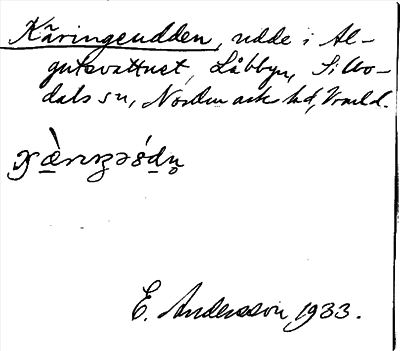 Käringeudden, udde i Al-
gutsvattnet, Låbbyn, Sillbo-
dals sn, Nordmarks hd, Vrmld.
E. Andersson 1933.